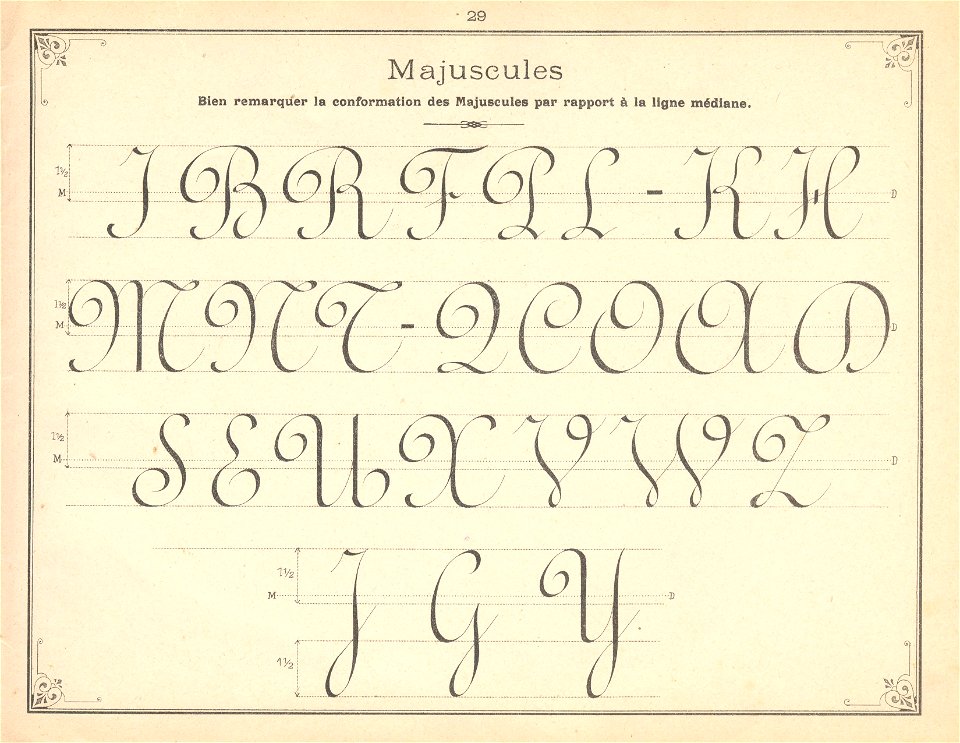 29
Majuscules
Bien remarquer la conformation des Majuscules par rapport à la ligne médiane.
1½ M I B R F P L - K H D
1½ M M N T - Q C O A D D
1½ M S E U X V W Z D
1½ M J G Y D
1½